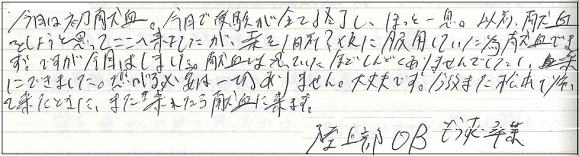 今日は初献血。今日で受験が全て終了し、ほっと一息。以前、献血
をしようと思ってここへ来ましたが、薬を1日前?夜に服用していた為献血でき
ず ですが今日はしました。献血は思っていたほどしんどくありませんでした
にできました。怖がる必要は一切ありません。大丈夫です。今後また松本
に来たときに、また来れたら献血に来ます。
陸上部OB もうすぐ卒業